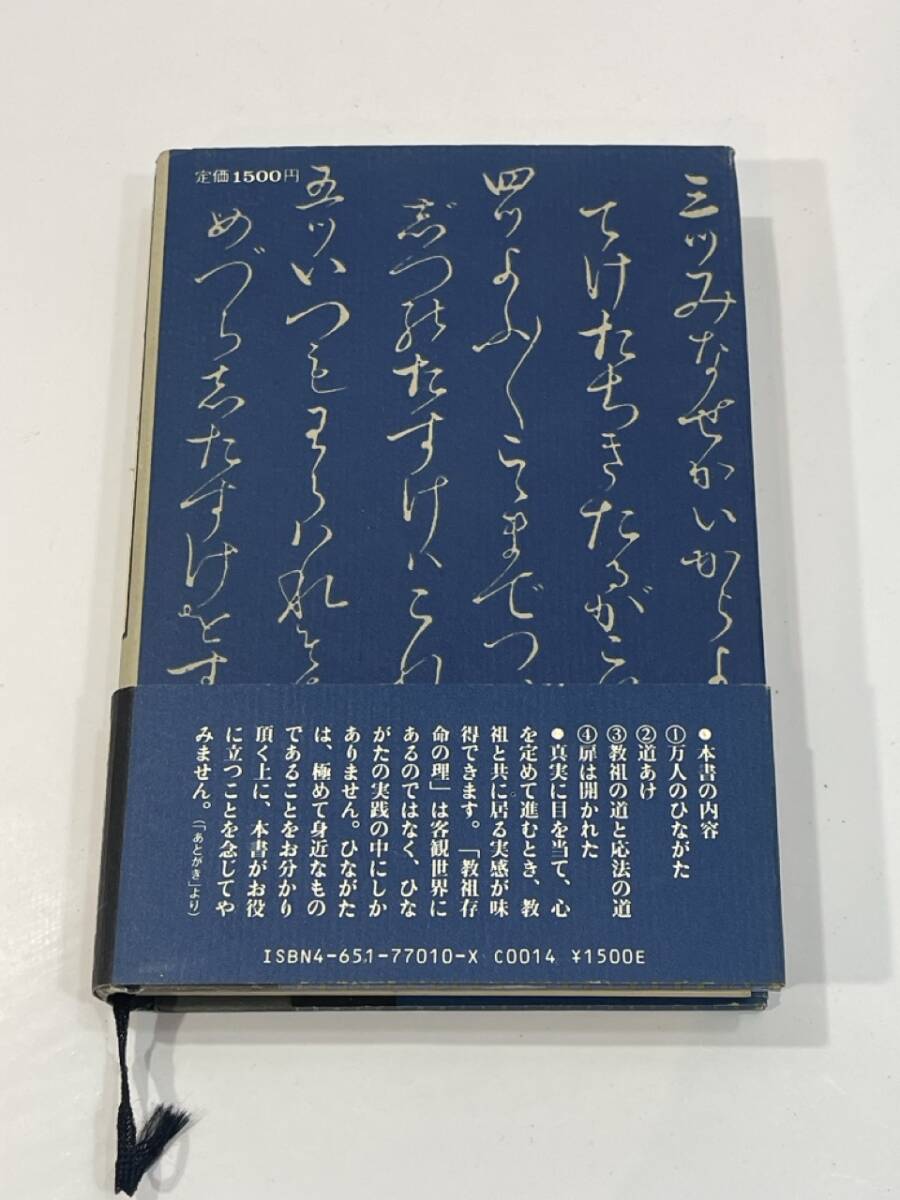 定価1500円
三ツみなせかいからよ
てけたちきたるがこ
四ツよふ〱こゝまでつい
ぢつのたすけハこれ
五ツいつもわらハれそ
めづらしたすけをす
●本書の内容
①万人のひながた
②道あけ
③教祖の道と応法の道
④扉は開かれた
●真実に目を当て、心
を定めて進むとき、教
祖と共に居る実感が味
得できます。「教祖存
命の理」は客観世界に
あるのではなく、ひな
がたの実践の中にしか
ありません。ひながた
は、極めて身近なもの
であることをお分かり
頂く上に、本書がお役
に立つことを念じてや
みません。(「あとがき」より)
ISBN4-651-77010-X C0014 ¥1500E